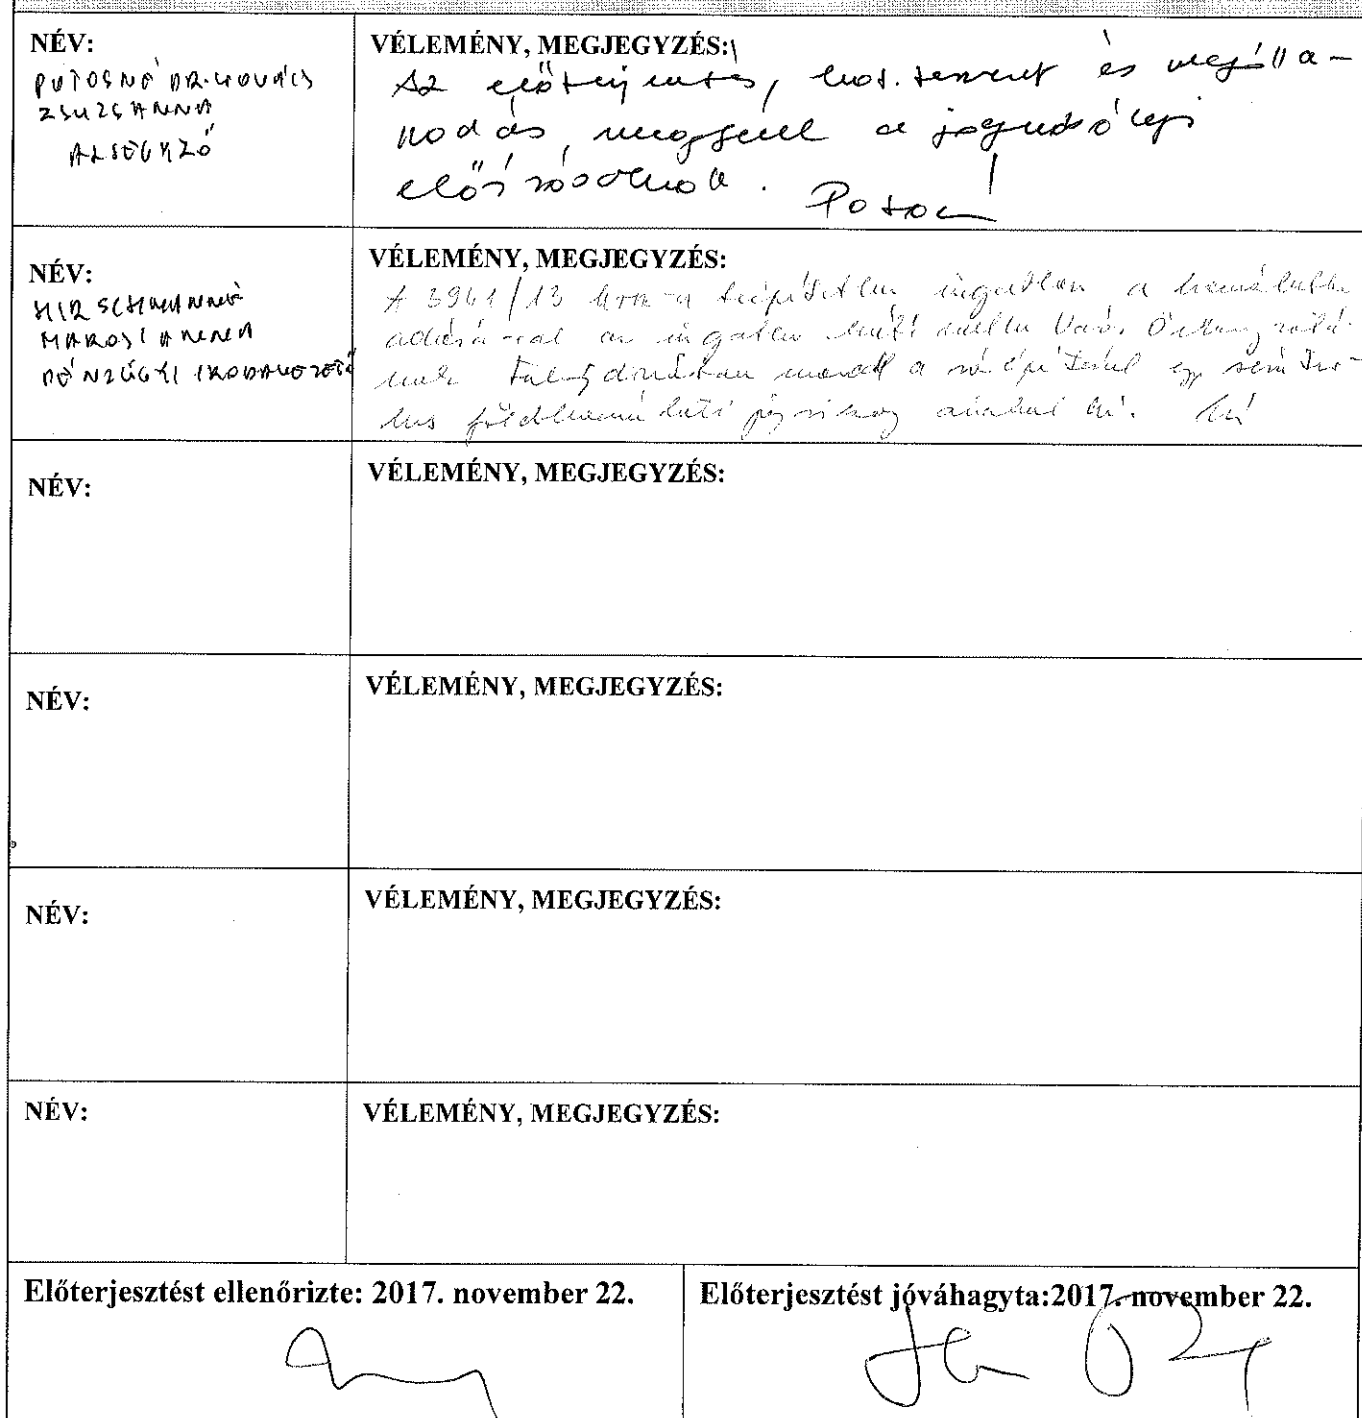 NÉV:
PUTOSNÉ DR. KOVÁCS
ZSUZSANNA
ALJEGYZŐ
VÉLEMÉNY, MEGJEGYZÉS:
Az előterjesztés, hat. tervezet és megálla-
podás megfelel a jogszabályi
előírásoknak.
NÉV:
HIRSCHMANNÉ
MAROSI ANNA
PÉNZÜGYI IRODAVEZETŐ
VÉLEMÉNY, MEGJEGYZÉS:
A 3961/13 hrsz-ú beépítetlen ingatlan a használatba
adásával az ingatlan Vár. Önkormányzatá-
nak tulajdonában marad a
földhasználati
NÉV:
VÉLEMÉNY, MEGJEGYZÉS:
NÉV:
VÉLEMÉNY, MEGJEGYZÉS:
NÉV:
VÉLEMÉNY, MEGJEGYZÉS:
NÉV:
VÉLEMÉNY, MEGJEGYZÉS:
Előterjesztést ellenőrizte: 2017. november 22.
Előterjesztést jóváhagyta:2017. november 22.